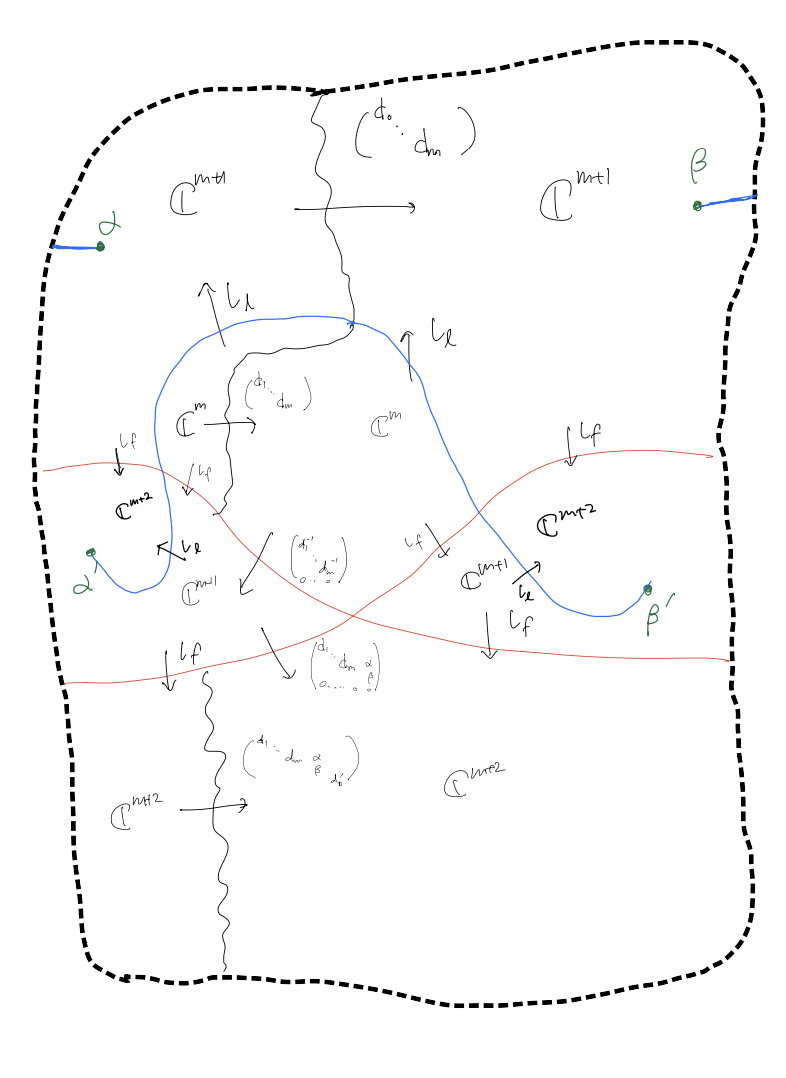 (d₀ ⋱ dₘ)
ℂᵐ⁺¹
ℂᵐ⁺¹
β
α
ι_ℓ
ι_ℓ
(d₁ ⋱ dₘ)
ℂᵐ
ℂᵐ
ι_f
ι_f
ι_f
ℂᵐ⁺²
ℂᵐ⁺²
ι_f
ι_ℓ
(d₁⁻¹ ⋱ dₘ⁻¹
0 ... 0)
α′
ℂᵐ⁺¹
ℂᵐ⁺¹
ι_ℓ
β′
ι_f
ι_f
(d₁ ⋱ dₘ α
β
0 .... 0 0)
(d₁ ⋱ dₘ α
β d₀′)
ℂᵐ⁺²
ℂᵐ⁺²